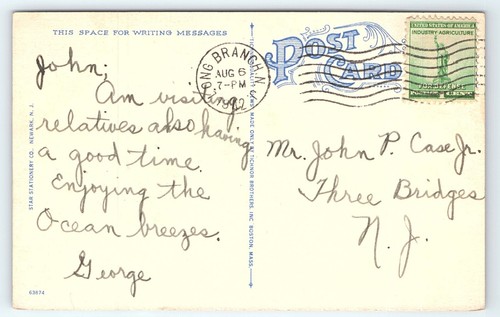 THIS SPACE FOR WRITING MESSAGES
John;
Am visiting
relatives also having
a good time.
Enjoying the
Ocean breezes.
George
STAR STATIONERY CO., NEWARK, N. J.
63674
TICHNOR BROTHERS, INC. BOSTON, MASS.
POST
CARD
LONG BRANCH, N.
AUG 6
7-PM
UNITED STATES OF AMERICA
INDUSTRY AGRICULTURE
FOR DEFENSE
Mr. John P. Case Jr.
Three Bridges
N. J.